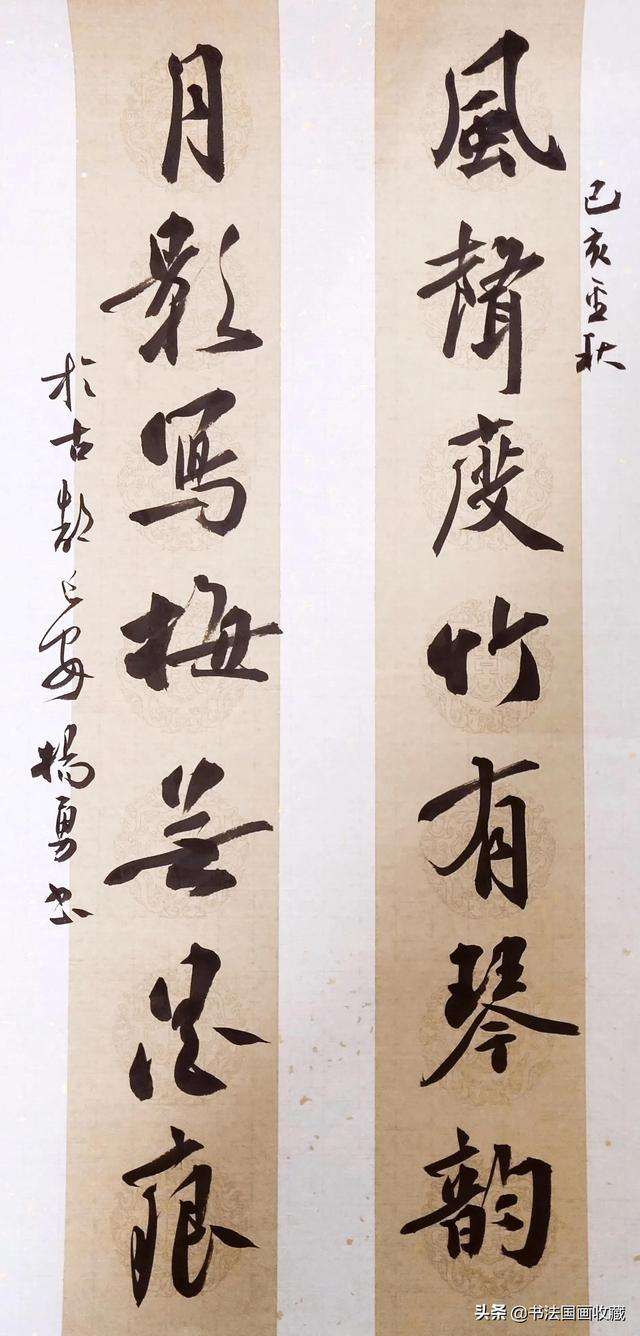 己亥金秋
風聲度竹有琴韵
月影寫梅無墨痕
於古都长安楊勇书
头条 @书法国画收藏